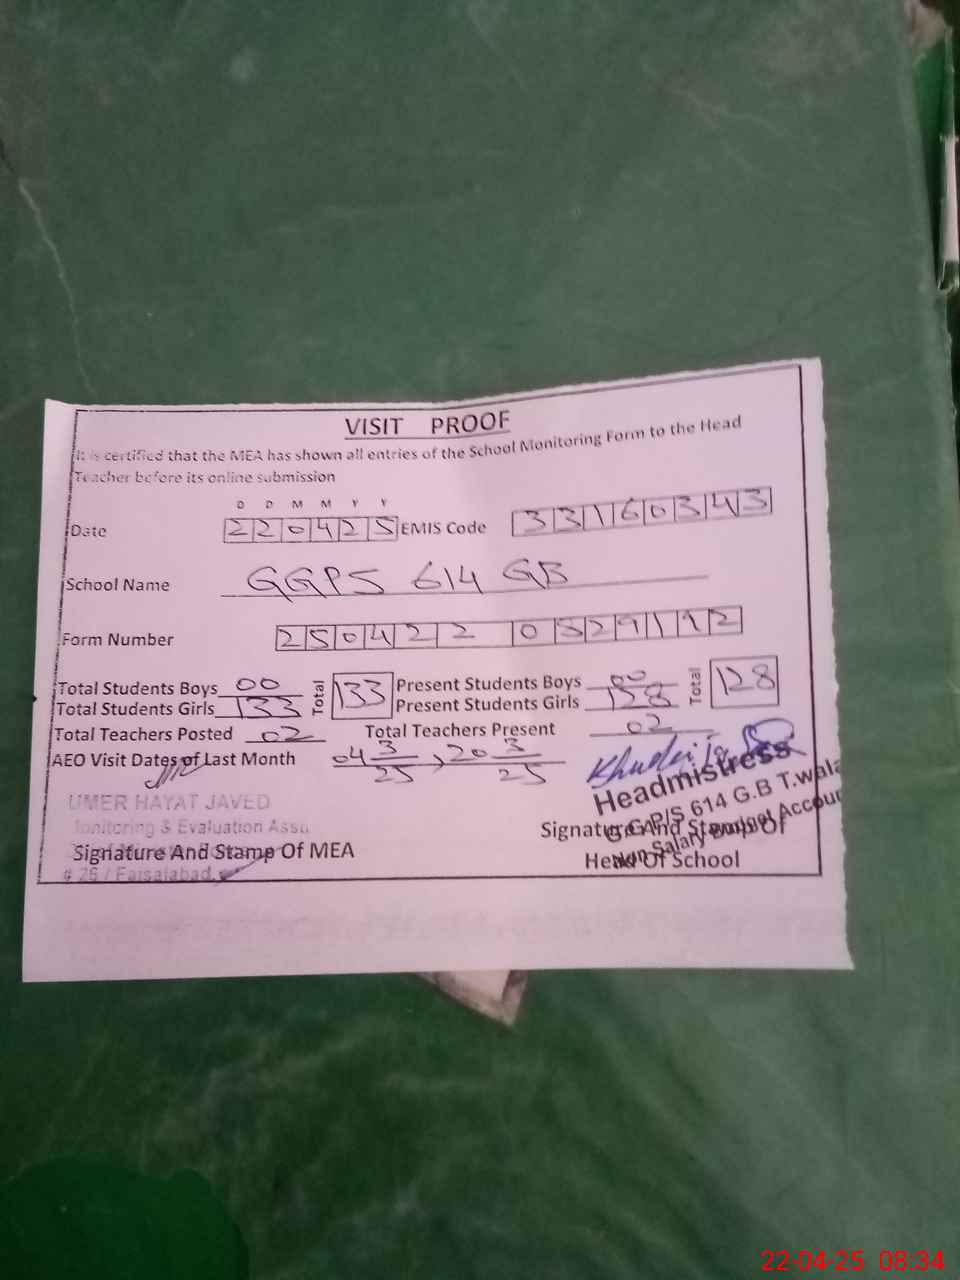 VISIT PROOF
It is certified that the MEA has shown all entries of the School Monitoring Form to the Head
Teacher before its online submission
D D M M Y Y
Date 2 2 0 4 2 5 EMIS Code 3 3 1 6 0 3 4 3
School Name GGPS 614 GB
Form Number 2 5 0 4 2 2 2 0 5 2 9 1 9 2
Total Students Boys 00 Total 133 Present Students Boys 00 Total 128
Total Students Girls 133 Present Students Girls 128
Total Teachers Posted 02 Total Teachers Present 02
AEO Visit Dates of Last Month 04 3/25, 20 3/25
Headmistress
UMER HAYAT JAVED
G.G.P/S 614 G.B T.wala
Monitoring & Evaluation Assis
Signature And Stamp Of
Non Salary Budget Accoun
Signature And Stamp Of MEA
Head Of School
# 26 / Faisalabad.
22-04-25 08:34